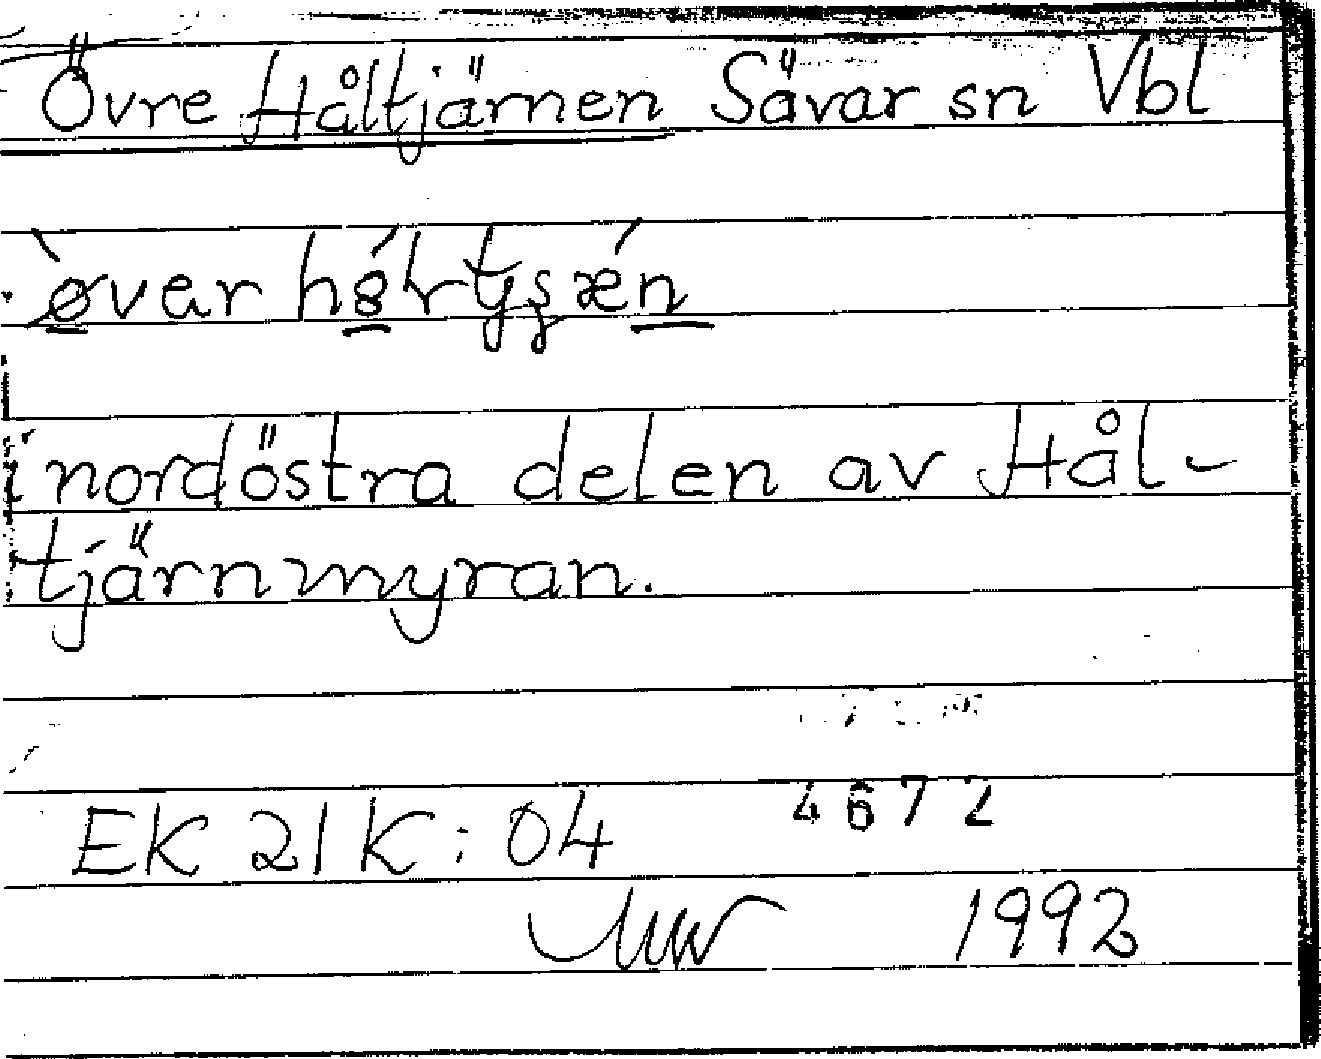 Övre Håltjärnen Sävar sn Vbl
nordöstra delen av Hål-
tjärnmyran.
EK 21K:04 4672
1992